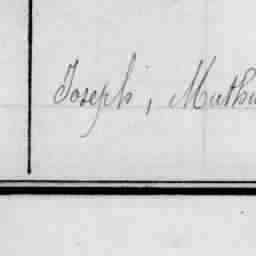 Joseph, Muthu